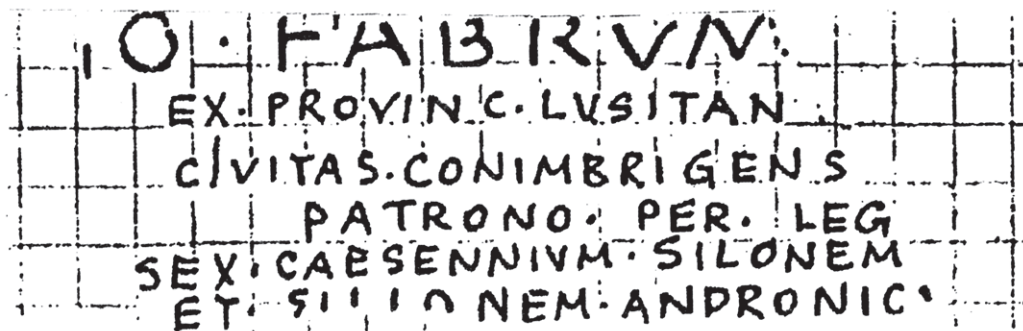 O · FABRVM ·
EX · PROVINC · LVSITAN
CIVITAS · CONIMBRIGENS
PATRONO · PER · LEG
SEX · CAESENNIVM · SILONEM
ET · ANDRONIC ·